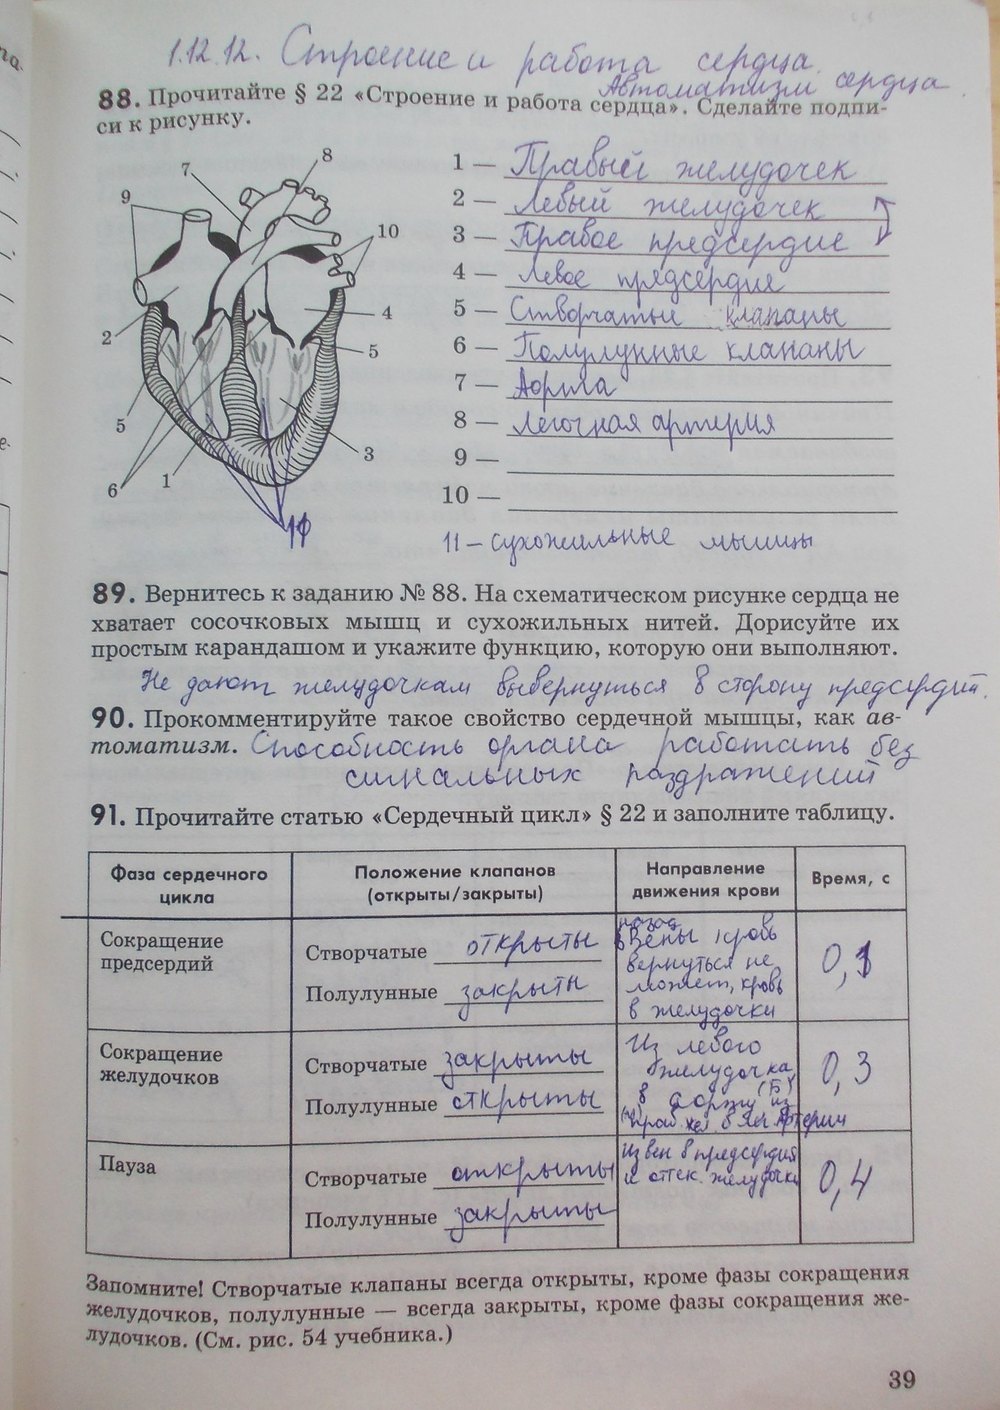 1.12.12. Строение и работа сердца.
Автоматизм сердца.
88. Прочитайте § 22 «Строение и работа сердца». Сделайте подпи-
си к рисунку.
8
7
9
10
4
2
5
5
3
6
1
11
1 — Правый желудочек
2 — Левый желудочек
3 — Правое предсердие
4 — Левое предсердие
5 — Створчатые клапаны
6 — Полулунные клапаны
7 — Аорта
8 — Легочная артерия
9 —
10 —
11 — сухожильные мышцы
89. Вернитесь к заданию № 88. На схематическом рисунке сердца не
хватает сосочковых мышц и сухожильных нитей. Дорисуйте их
простым карандашом и укажите функцию, которую они выполняют.
Не дают желудочкам вывернуться в сторону предсердий.
90. Прокомментируйте такое свойство сердечной мышцы, как ав-
томатизм. Способность органа работать без
сигнальных раздражений
91. Прочитайте статью «Сердечный цикл» § 22 и заполните таблицу.
Фаза сердечного цикла
Положение клапанов (открыты/закрыты)
Направление движения крови
Время, с
Сокращение предсердий
Створчатые открыты
Полулунные закрыты
назад
в Вены кровь
вернуться не
может, кровь
в желудочки
0,1
Сокращение желудочков
Створчатые закрыты
Полулунные открыты
Из левого
желудочка
в аорту (Б) из
прав. жел. в лег. артерии
0,3
Пауза
Створчатые открыты
Полулунные закрыты
из вен в предсердия
и оттек. желудочки
0,4
Запомните! Створчатые клапаны всегда открыты, кроме фазы сокращения
желудочков, полулунные — всегда закрыты, кроме фазы сокращения же-
лудочков. (См. рис. 54 учебника.)
39